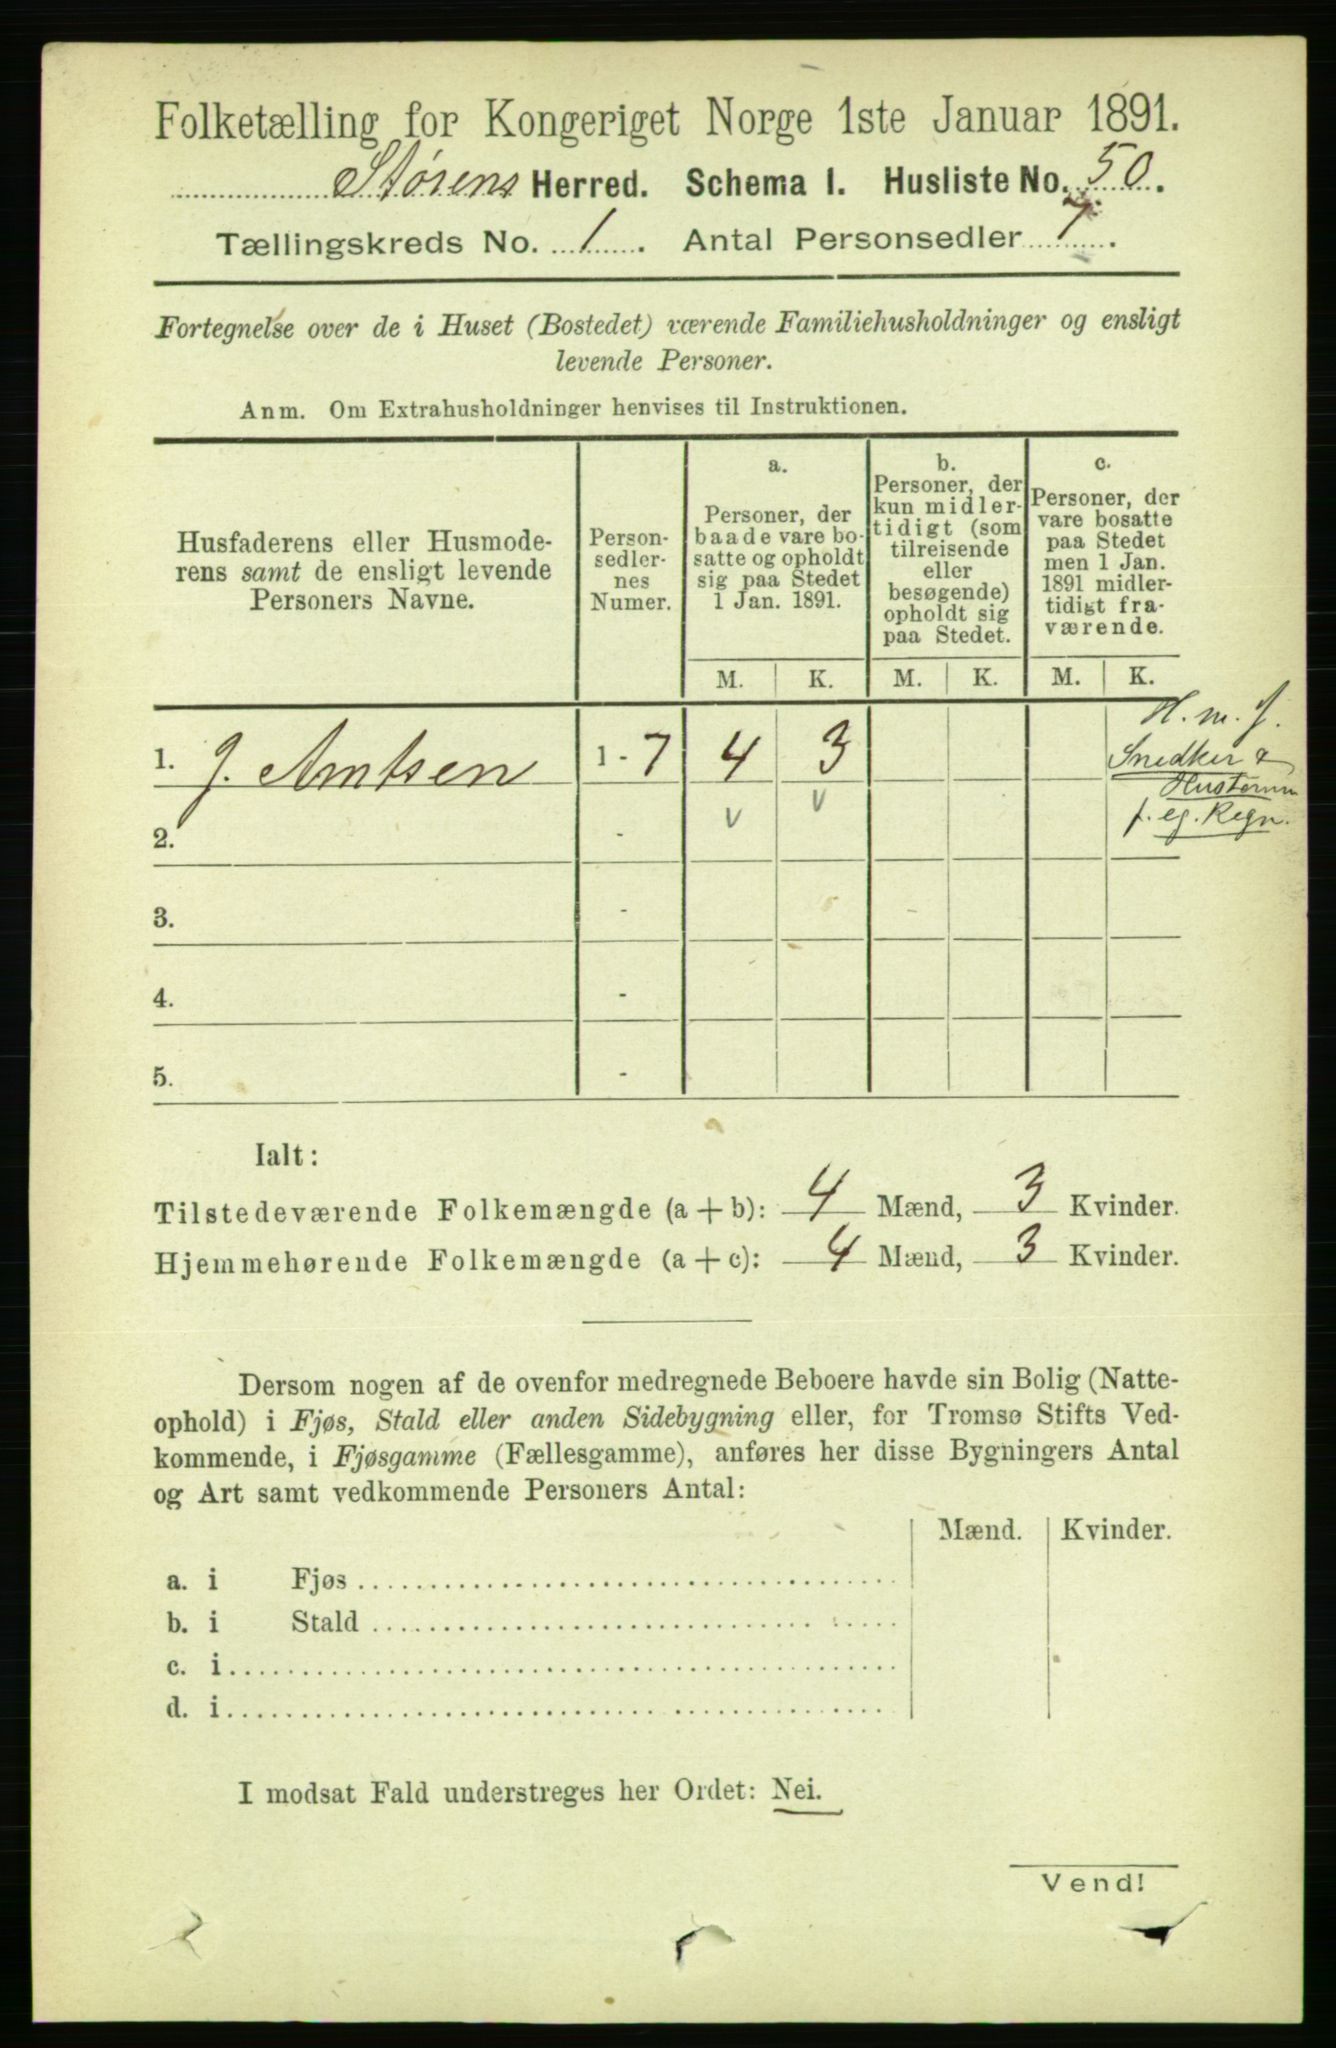 Folketælling for Kongeriget Norge 1ste Januar 1891.
Størens Herred. Schema I. Husliste No. 50.
Tællingskreds No. 1. Antal Personsedler 7.
Fortegnelse over de i Huset (Bostedet) værende Familiehusholdninger og ensligt
levende Personer.
Anm. Om Extrahusholdninger henvises til Instruktionen.
Husfaderens eller Husmode-
rens samt de ensligt levende
Personers Navne.
Person-
sedler-
nes
Numer.
a.
Personer, der
baade vare bo-
satte og opholdt
sig paa Stedet
1 Jan. 1891.
b.
Personer, der
kun midler-
tidigt (som
tilreisende
eller
besøgende)
opholdt sig
paa Stedet.
c.
Personer, der
vare bosatte
paa Stedet
men 1 Jan.
1891 midler-
tidigt fra-
værende.
M. K. M. K. M. K.
H. m. f.
1. J. Amtsen 1 - 7 4 3
Snedker &
Hustømm
f. eg. Regn.
v v
2. -
3. - -
4. -
5. -
Ialt:
Tilstedeværende Folkemængde (a + b): 4 Mænd, 3 Kvinder.
Hjemmehørende Folkemængde (a + c): 4 Mænd, 3 Kvinder.
Dersom nogen af de ovenfor medregnede Beboere havde sin Bolig (Natte-
ophold) i Fjøs, Stald eller anden Sidebygning eller, for Tromsø Stifts Ved-
kommende, i Fjøsgamme (Fællesgamme), anføres her disse Bygningers Antal
og Art samt vedkommende Personers Antal:
Mænd. Kvinder.
a. i Fjøs
b. i Stald
c. i
d. i
I modsat Fald understreges her Ordet: Nei.
Vend!